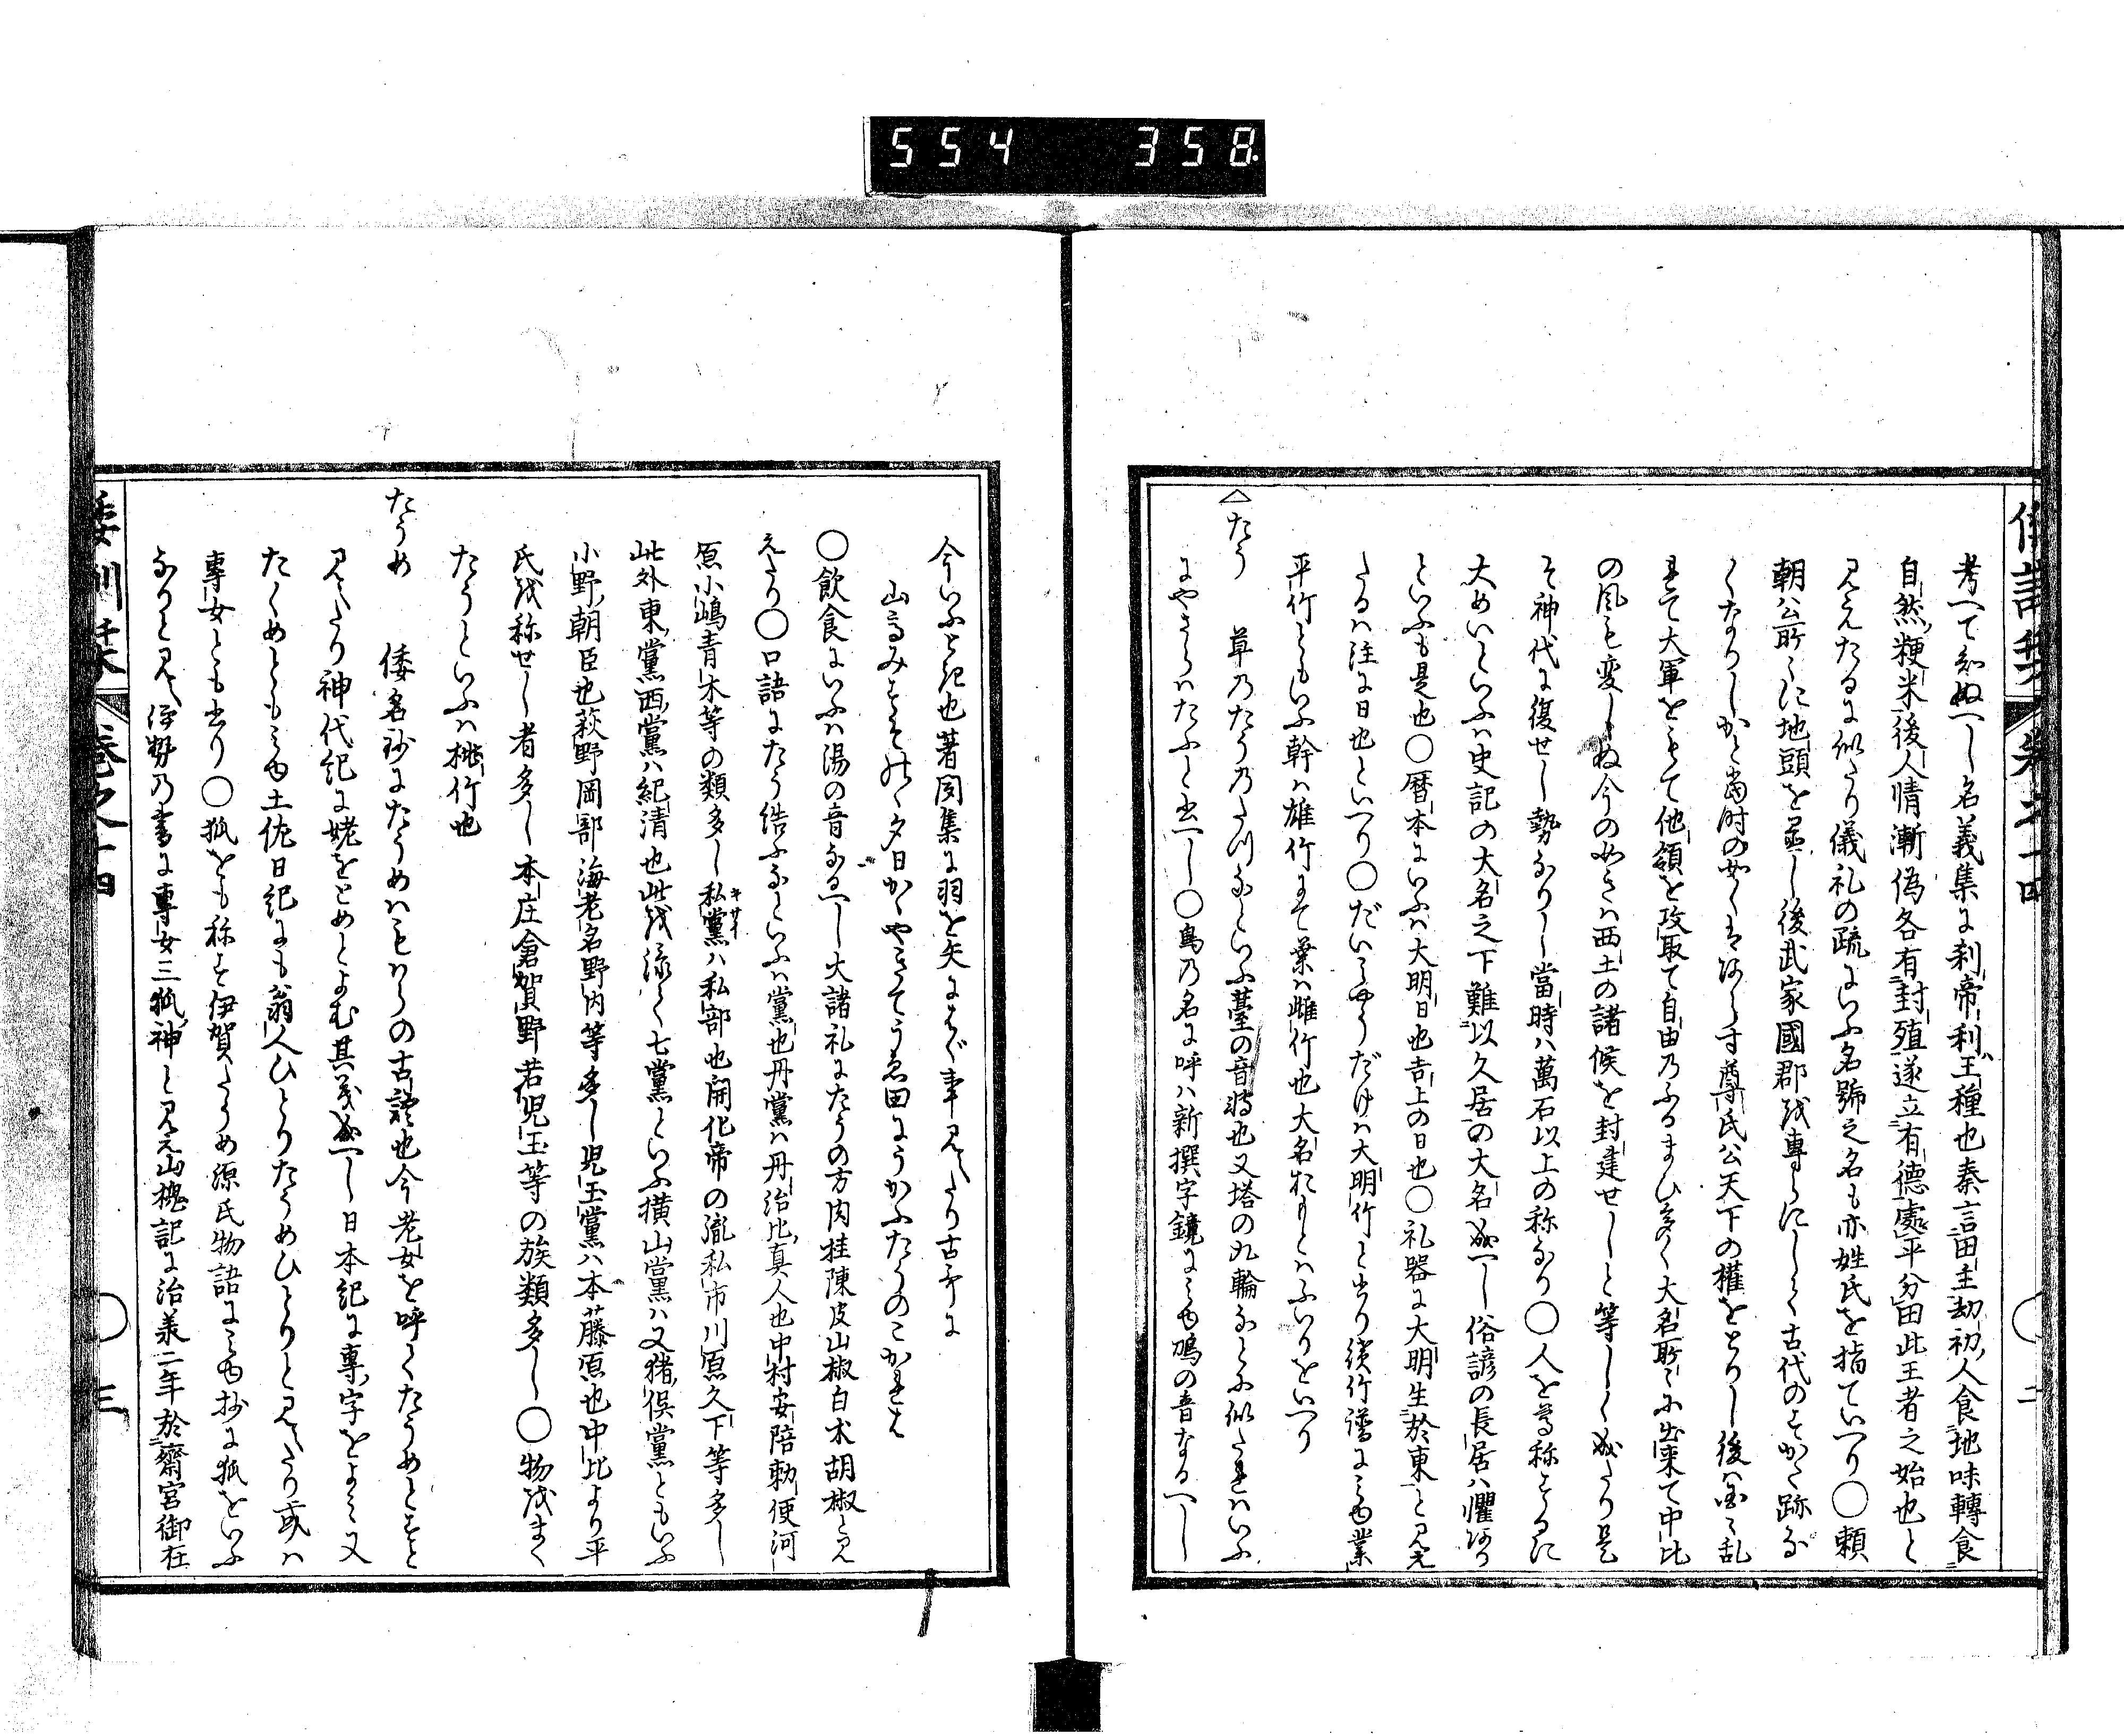 554 358
倭訓栞 巻之十四 二
考へて知ぬへし名義集に刹帝利王種也秦言田主劫初人食地味轉食
自然粳米後人情漸偽各有封殖遂立有德處平分田此王者之始也と
見えたるに似たり儀礼の疏にいふ名號之名も亦姓氏を指ていへり〇頼
朝公所々に地頭を置し後武家國郡を専らにして古代のすかた跡な
くなりしかと當時の如くにはあらす尊氏公天下の權をとりし後は国々乱
れて大軍をもて他領を攻取て自由のふるまひ多く大名所々に出来て中比
の風も変しぬ今の如きは西土の諸侯を封建せしと等しく成たり是
そ神代に復せし勢なりし當時は萬石以上の称なり〇人を尊称するに
大めいといふは史記の大名之下難以久居の大名成へし俗諺の長居は懼あり
といふも是也〇暦本にいふは大明日也吉上の日也〇礼器に大明生於東と見え
たるは注に日也といへり〇だいみやうだけは大明竹と書り續竹譜にみゆ業
平竹ともいふ幹は雄竹にて葉は雌竹也大名おもとはふいりをいへり
△たう 草のたうのたけなといふ薹の音轉也又塔の九輪なとに似たれはいふ
にやさらはたふと書へし〇鳥の名に呼は新撰字鏡にみゆ鴇の音なるへし
今いふとき也著聞集に羽を矢にはぐ事見えたり古哥に
山高みすそのゝ夕日かゝやきてうゑ田にうかふたうのこかれは
〇飲食にいふは湯の音なるへし大諸礼にたうの方肉桂陳皮山椒白朮胡椒と見
えたり〇口語にたう結ふなといふは黨也丹黨は丹治比真人也中村安陪勅使河
原小嶋青木等の類多し私黨は私部也開化帝の胤私市川原久下等多し
キサイ
此外東黨西黨は紀清也此を添て七黨といふ横山黨は又猪俣黨ともいふ
小野朝臣也萩野岡部海老名野内等多し児玉黨は本藤原也中比より平
氏を称せし者多し本庄倉賀野若児玉等の族類多し〇物をまく
たうといふは桃竹也
たうめ 倭名抄にたうめはもはらの古語也今老女を呼てたうめとすと
見えたり神代紀に姥をとめとよむ其義成へし日本紀に専字をよみ又
たくめともみゆ土佐日記にも翁人ひとりたうめひとりと見えたり或は
専女とも書り〇狐をも称す伊賀たうめ源氏物語にみゆ抄に狐をいふ
なりと見ゆ伊勢の書に専女三狐神と見え山槐記に治承二年於齋宮御在
倭訓栞 巻之十四 三